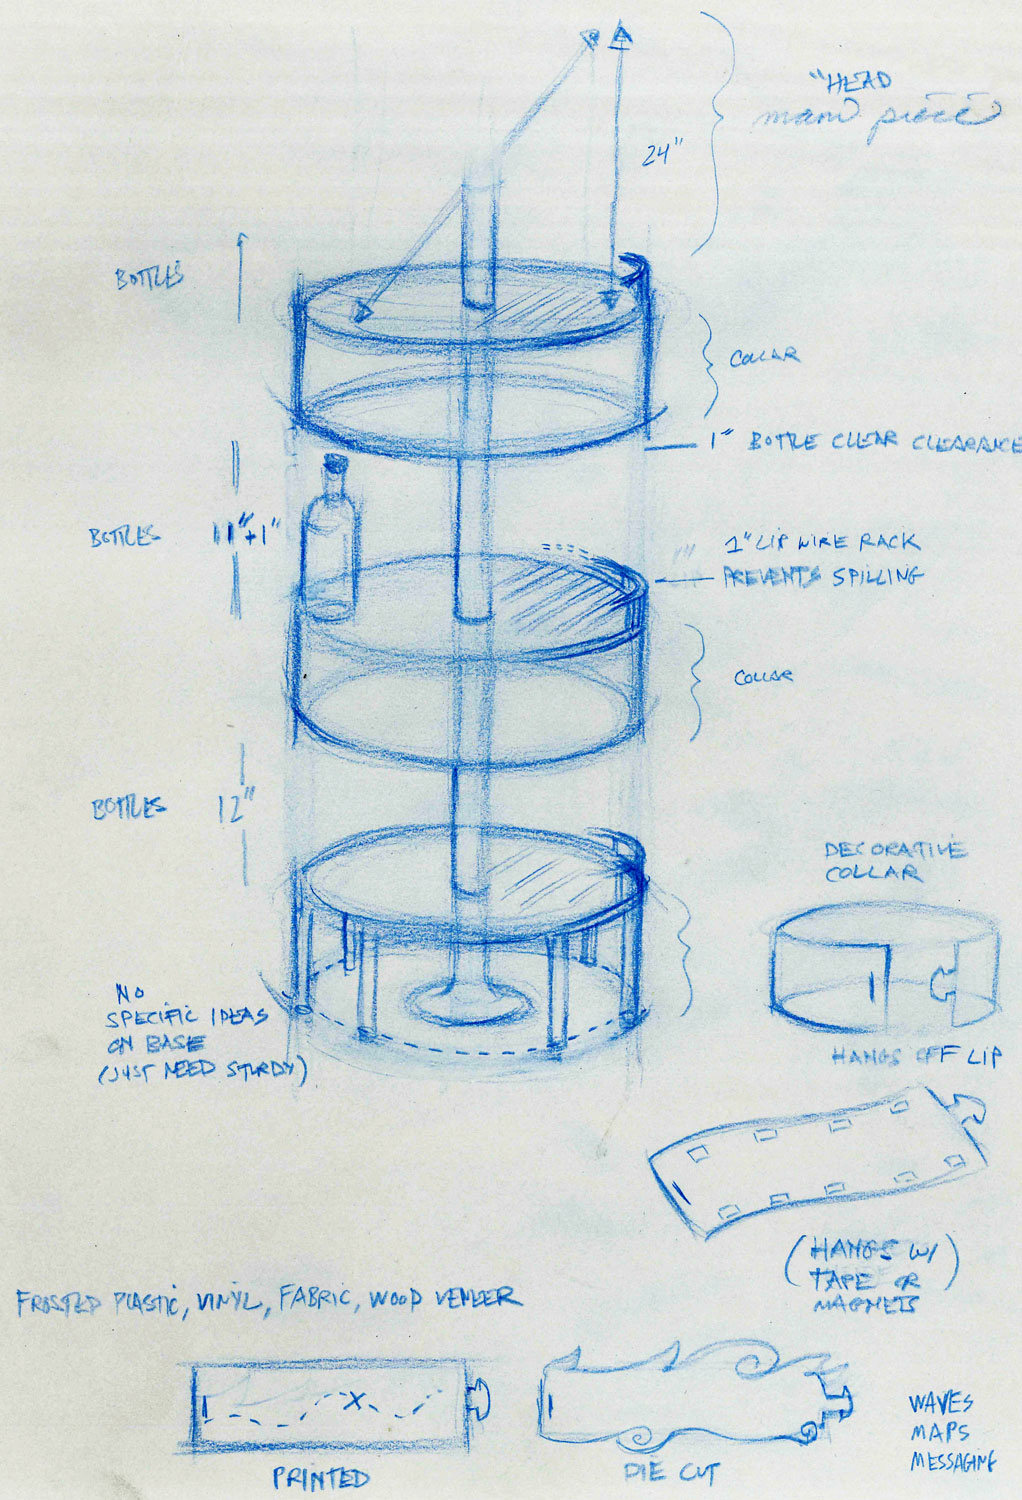 "HEAD
main piece
24"
BOTTLES
COLLAR
1" BOTTLE CLEAR CLEARANCE
BOTTLES 11"+1"
1" LIP WIRE RACK
PREVENTS SPILLING
COLLAR
BOTTLES 12"
DECORATIVE
COLLAR
NO
SPECIFIC IDEAS
ON BASE
(JUST NEED STURDY)
HANGS OFF LIP
(HANGS W/
TAPE OR
MAGNETS)
FROSTED PLASTIC, VINYL, FABRIC, WOOD VENEER
X
PRINTED
DIE CUT
WAVES
MAPS
MESSAGING